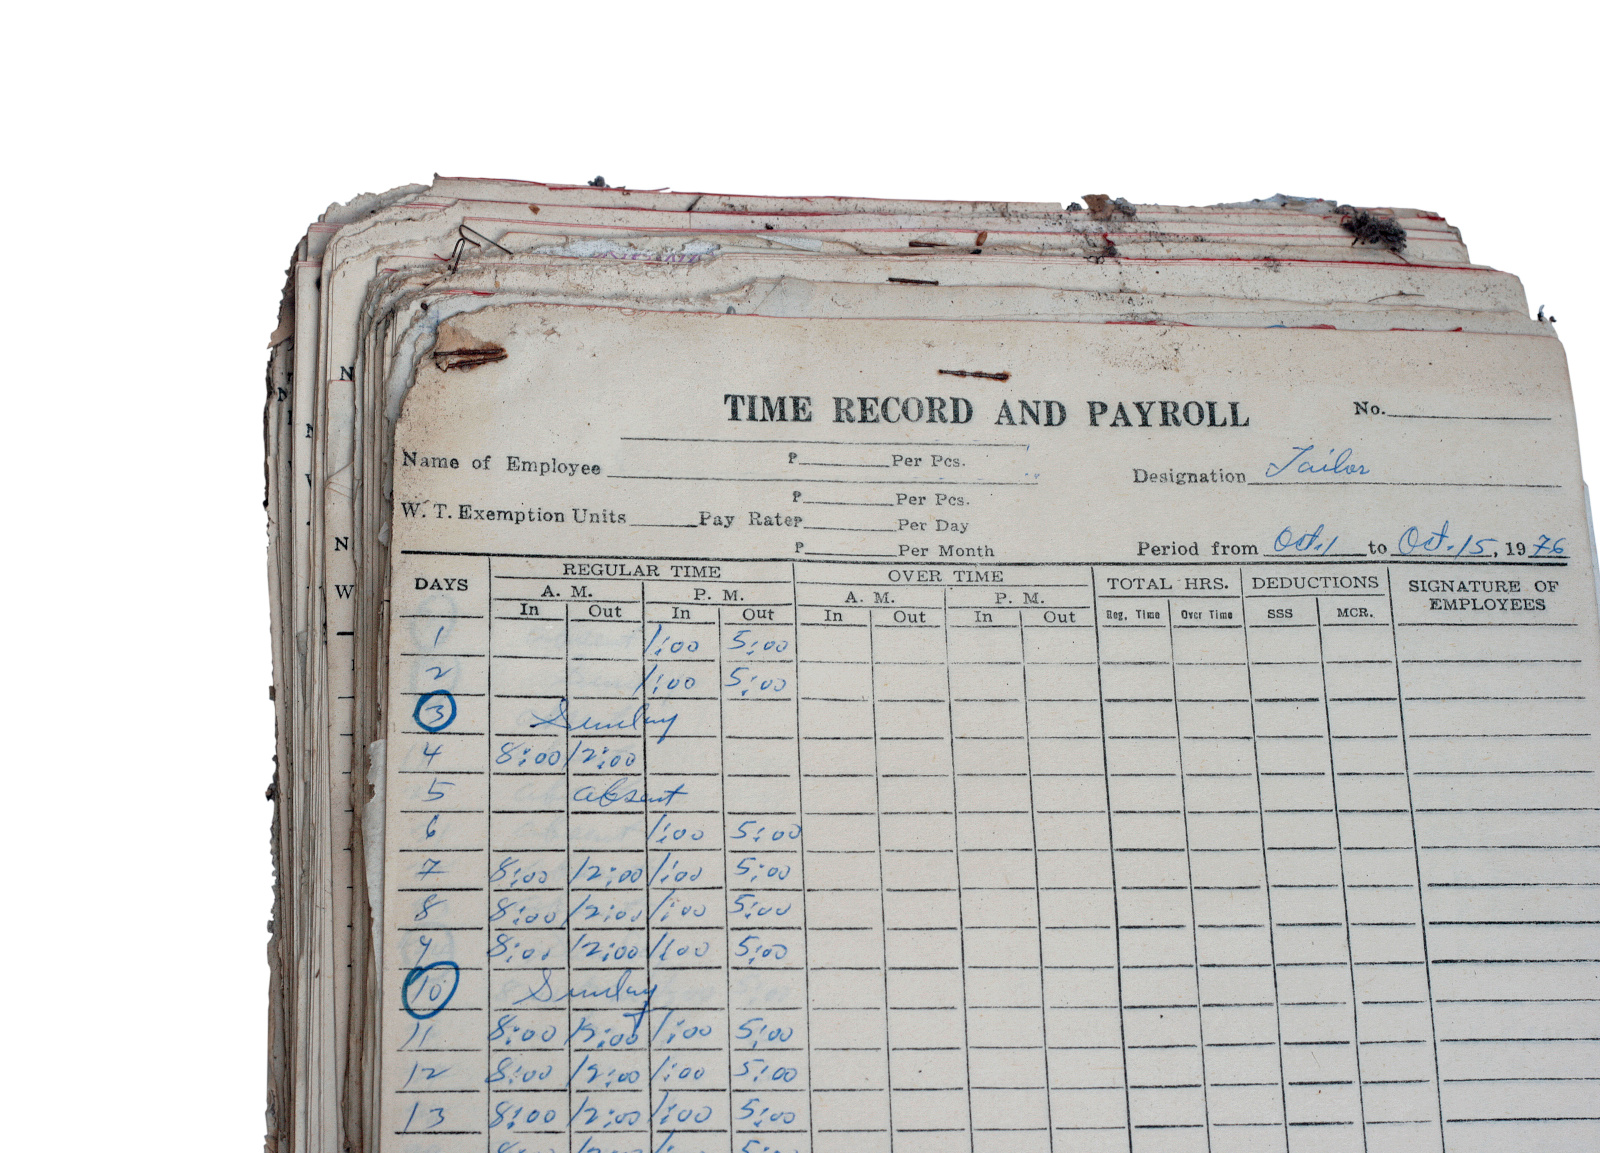 TIME RECORD AND PAYROLL No.
Name of Employee ₱ Per Pcs.
Designation Tailor
₱ Per Pcs.
W. T. Exemption Units Pay Rate ₱ Per Day
₱ Per Month
Period from Oct. 1 to Oct. 15, 1976
DAYS REGULAR TIME OVER TIME TOTAL HRS. DEDUCTIONS SIGNATURE OF EMPLOYEES
A. M. P. M. A. M. P. M.
In Out In Out In Out In Out Reg. Time Over Time SSS MCR.
1 1:00 5:00
2 1:00 5:00
3 Sunday
4 8:00 12:00
5 absent
6 1:00 5:00
7 8:00 12:00 1:00 5:00
8 8:00 12:00 1:00 5:00
9 8:00 12:00 1:00 5:00
10 Sunday
11 8:00 12:00 1:00 5:00
12 8:00 12:00 1:00 5:00
13 8:00 12:00 1:00 5:00
N
N
W